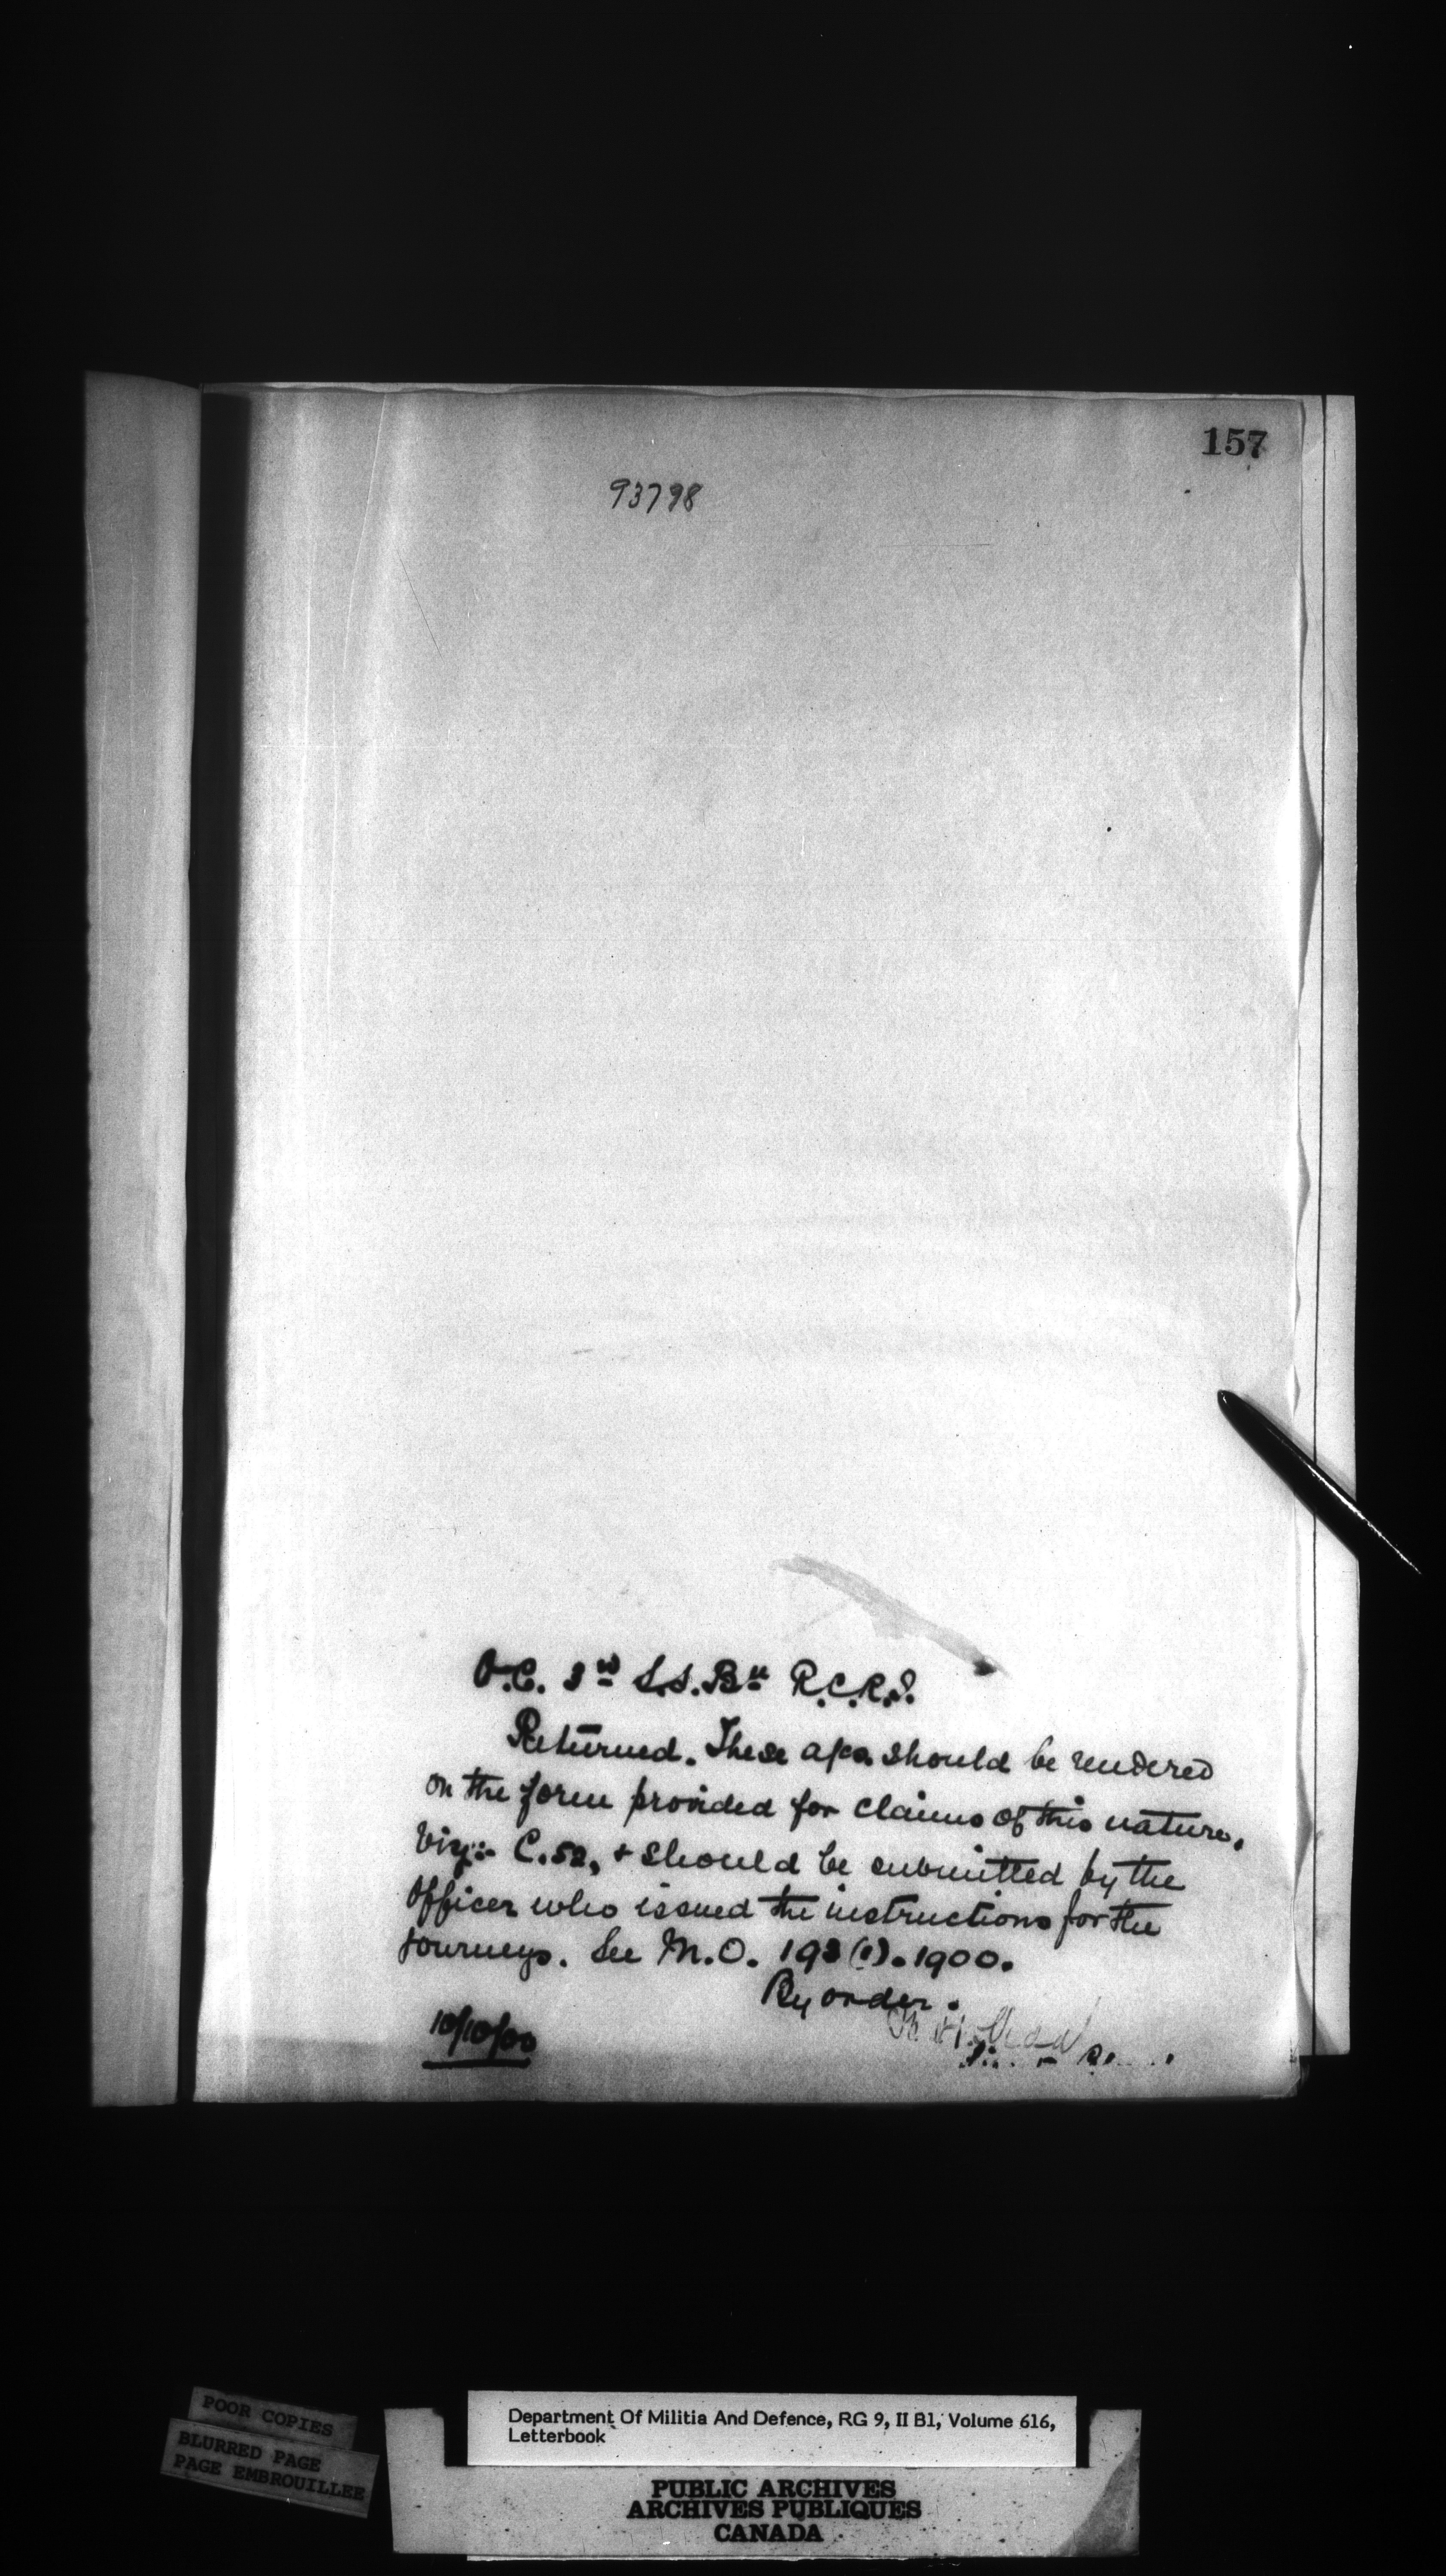 157
93798
O.C. 3rd S.S. Bn R.C.R.I.
Returned. These a/cs. should be rendered
on the form provided for claims of this nature,
Viz:- C.52, + should be submitted by the
Officer who issued the instructions for the
journeys. See M.O. 193(1). 1900.
By order.
10/10/00
POOR COPIES
BLURRED PAGE
PAGE EMBROUILLEE
Department Of Militia And Defence, RG 9, II B1, Volume 616,
Letterbook
PUBLIC ARCHIVES
ARCHIVES PUBLIQUES
CANADA